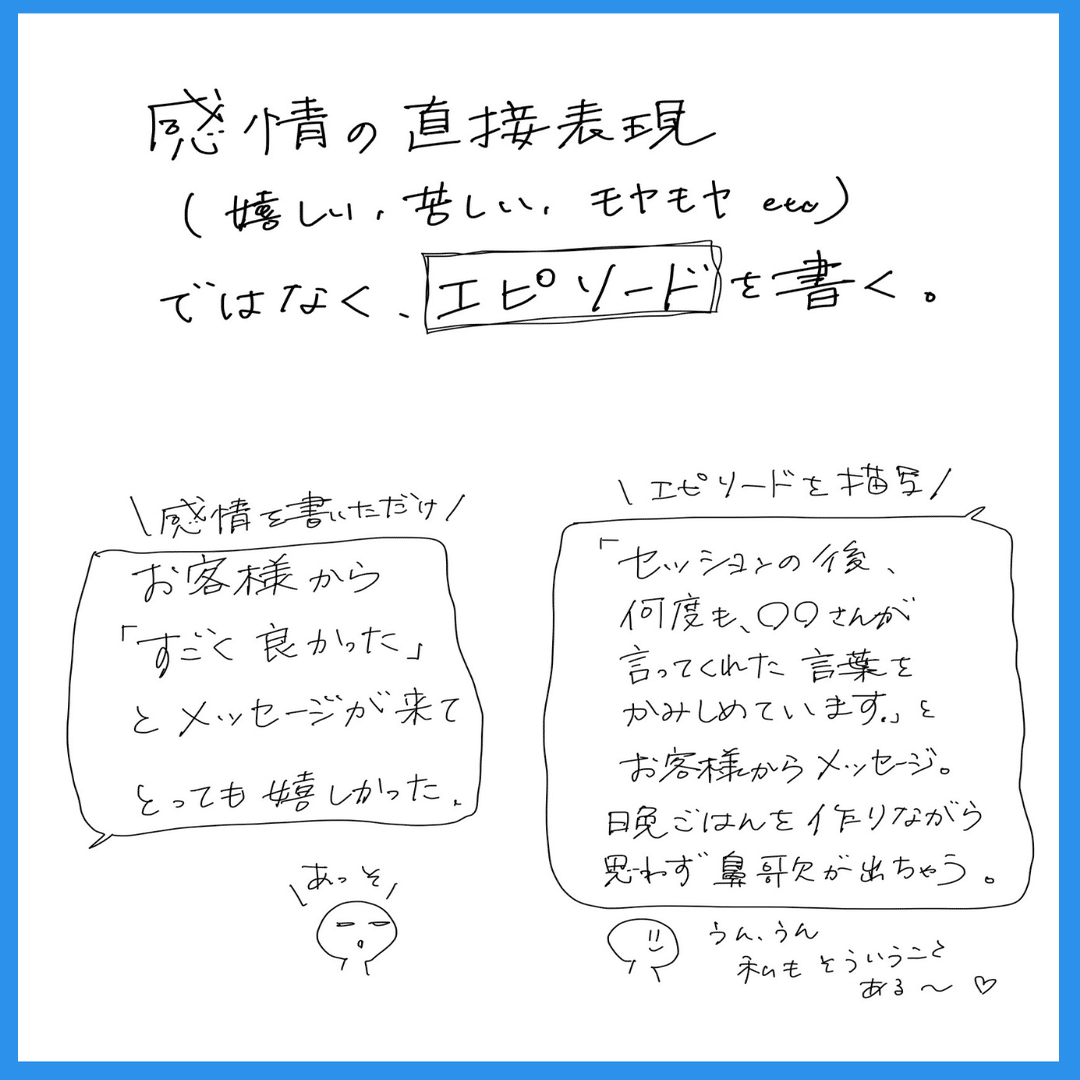 感情の直接表現
(嬉しい、苦しい、モヤモヤ etc)
ではなく、エピソードを書く。
\感情を書いただけ/
お客様から
「すごく良かった」
とメッセージが来て
とっても嬉しかった。
\あっそ/
\エピソードを描写/
「セッションの後、
何度も、〇〇さんが
言ってくれた言葉を
かみしめています。」と
お客様からメッセージ。
日晩ごはんを作りながら
思わず鼻歌が出ちゃう。
うん、うん
私もそういうこと
ある〜♡